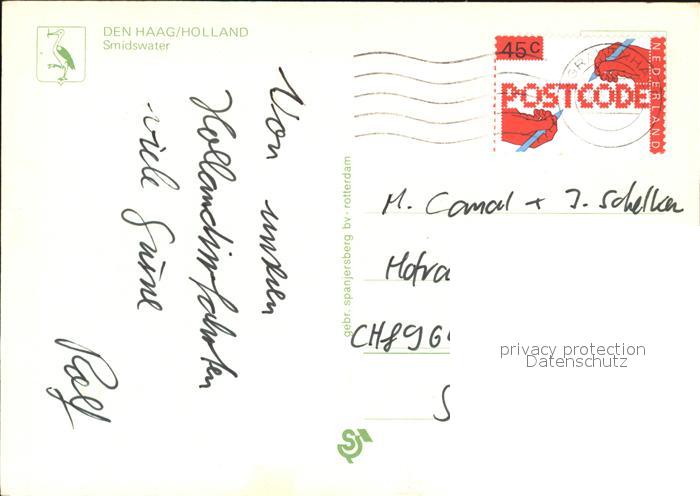 DEN HAAG/HOLLAND
Smidswater
Von unsren
Hollandirrfahrten
viele Grüsse
Rolf
gebr. spanjersberg bv - rotterdam
45c
POSTCODE
NEDERLAND
M. + J. Schelker
Hofra
CH 896
S
privacy protection
Datenschutz